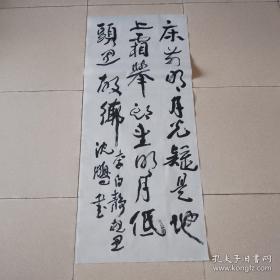 床前明月光疑是地
上霜舉头望明月低
頭思故鄉
李白靜夜思
沈鵬書
孔夫子旧书网